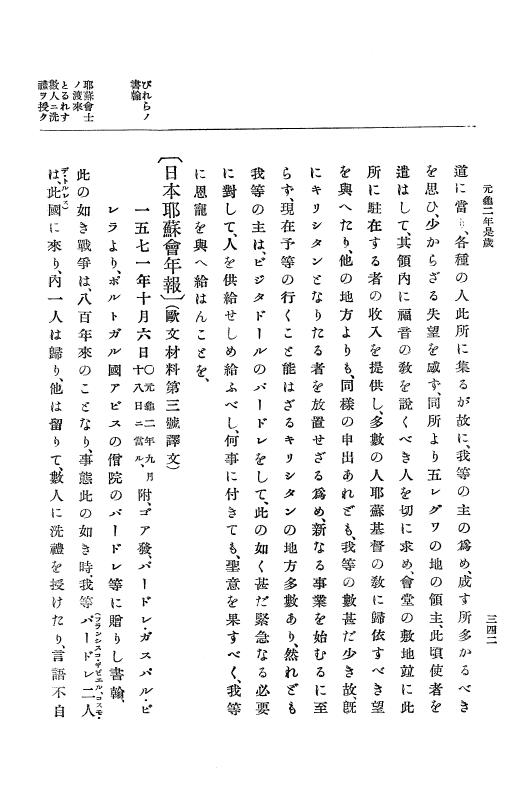 元龜二年是歲
三四二
道に當り、各種の人此所に集るが故に、我等の主の爲め、成す所多かるべき
を思ひ、少からざる失望を感ず、同所より五レグワの地の領主、此頃使者を
遣はして、其領内に福音の敎を說くべき人を切に求め、會堂の敷地竝に此
所に駐在する者の收入を提供し、多數の人耶蘇基督の敎に歸依すべき望
を與へたり、他の地方よりも、同樣の申出あれども、我等の數甚だ少き故、旣
にキリシタンとなりたる者を放置せざる爲め、新なる事業を始むるに至
らず、現在予等の行くこと能はざるキリシタンの地方多數あり、然れども
我等の主は、ビジタドールのパードレをして、此の如く甚だ緊急なる必要
に對して、人を供給せしめ給ふべし、何事に付きても、聖意を果すべく、我等
に恩寵を與へ給はんことを、
〔日本耶蘇會年報〕(歐文材料第三號譯文)
一五七一年十月六日〇元龜二年九月十八日ニ當ル、附、ゴア發、パードレ・ガスパル・ビ
レラより、ポルトガル國アビスの僧院のパードレ等に贈りし書翰、
此の如き戰爭は、八百年來のことなり、事態此の如き時、我等パードレ二人(フランシスコ・ザビエル、コスモ・
デ・トルレス)は、此國に來り、内一人は歸り、他は留りて、數人に洗禮を授けたり、言語不自
びれらノ
書翰
耶蘇會士
ノ渡來
とるれす
數人ニ洗
禮ヲ授ク